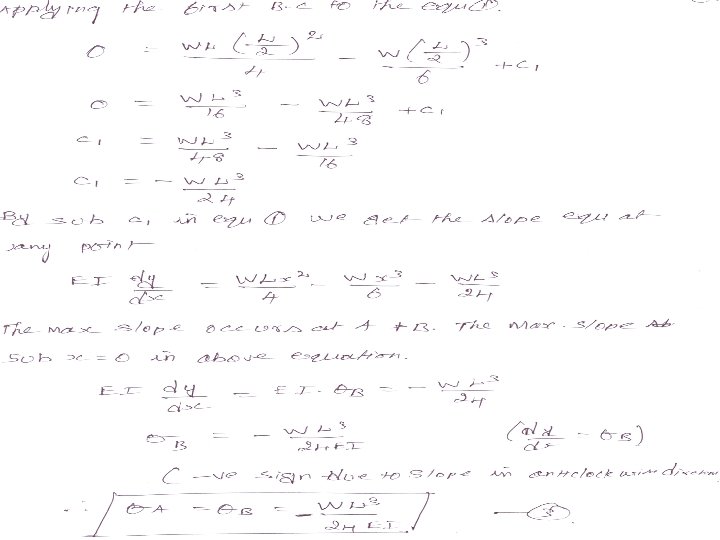 Applying the first B.C to the equ ①.
0 = WL (L/2)² / 4 - W (L/2)³ / 6 + C₁
0 = WL³/16 - WL³/48 + C₁
C₁ = WL³/48 - WL³/16
C₁ = - WL³/24
By sub C₁ in equ ① we get the slope equ at
any point
EI dy/dx = WLx²/4 - Wx³/6 - WL³/24
The max slope occurs at A + B. The Max. slope
Sub x = 0 in above equation.
E.I dy/dx = E.I. θB = - WL³/24
θB = - WL³/24EI (dy/dx = θB)
( -ve sign due to slope in anticlockwise
∴ θA = θB = - WL³/24EI